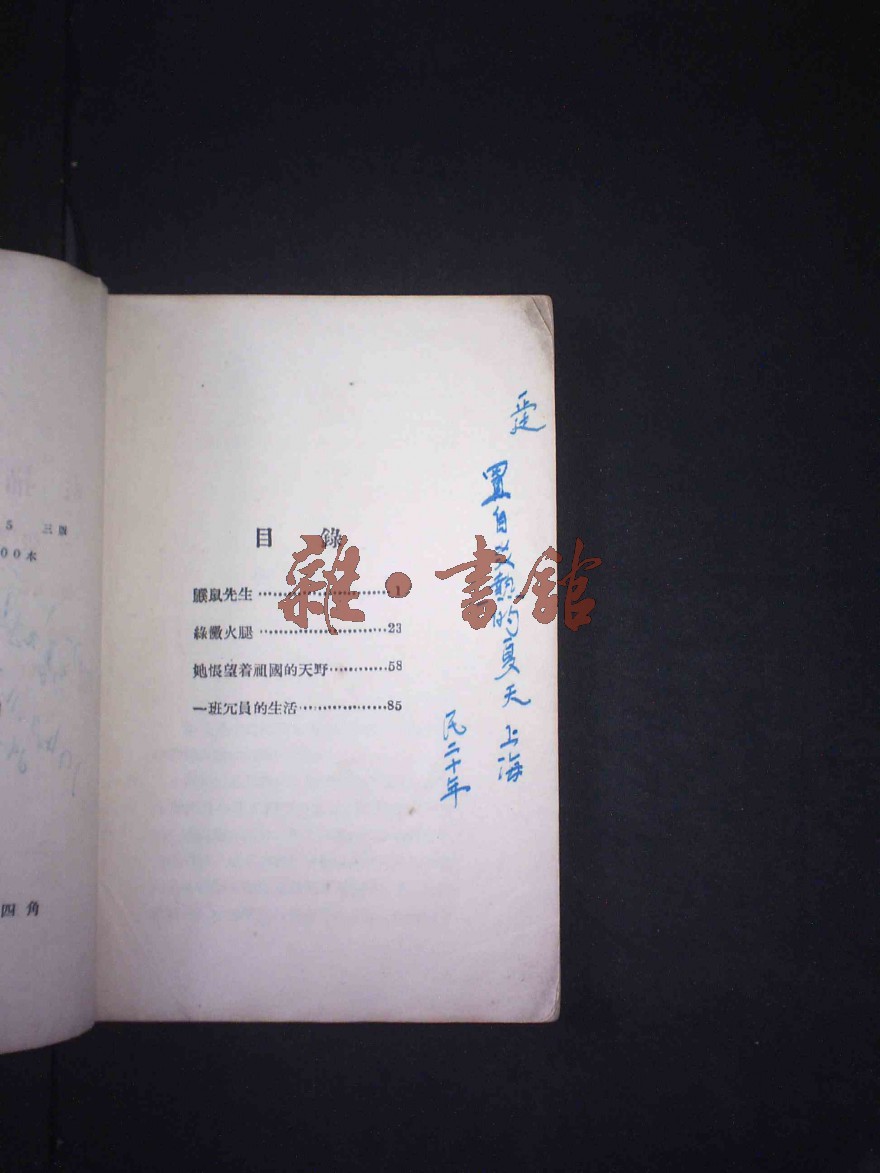 5 三版
00本
四角
目錄
鼷鼠先生 1
綠黴火腿 23
她悵望着祖國的天野 58
一班冗員的生活 85
置自炎熱的夏天 上海
民二十年
雜·書館